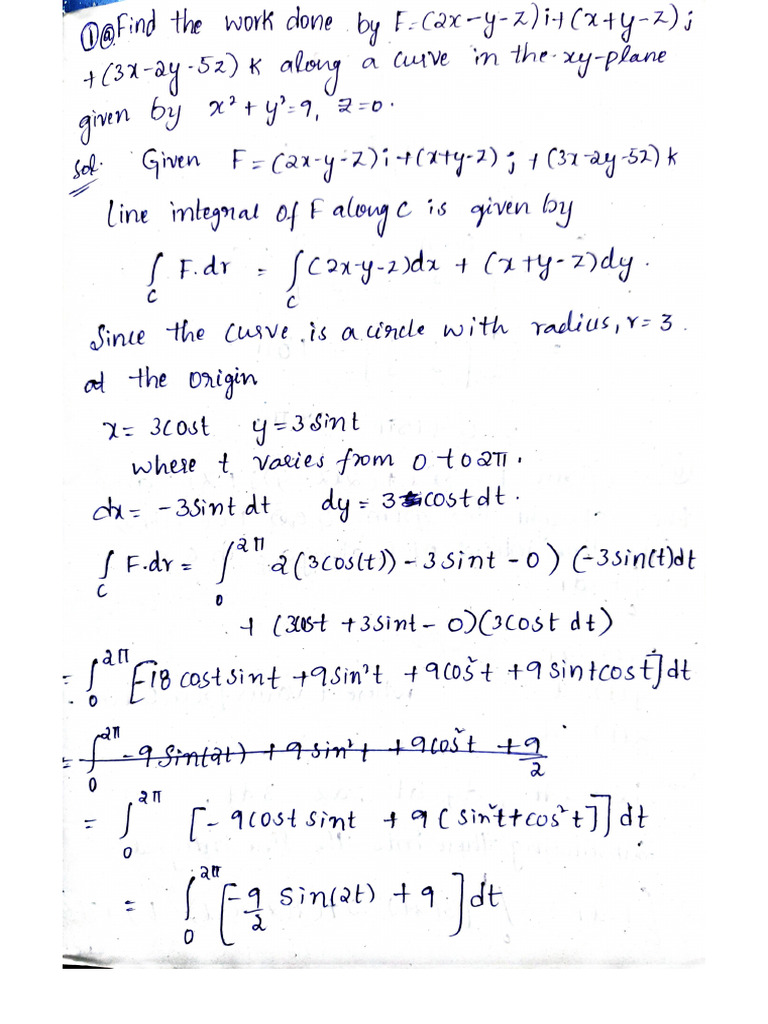 ①ⓐ Find the work done by F=(2x-y-z)i+(x+y-z)j
+(3x-2y-5z)k along a curve in the xy-plane
given by x²+y²=9, z=0.
Sol. Given F=(2x-y-z)i+(x+y-z)j+(3x-2y-5z)k
Line integral of F along C is given by
∫_C F.dr = ∫_C (2x-y-z)dx + (x+y-z)dy.
Since the curve is a circle with radius, r=3.
at the origin
x=3cost y=3sint
where t varies from 0 to 2π.
dx=-3sint dt dy=3costdt.
∫_C F.dr = ∫_0^{2π} 2(3cos(t))-3sint-0)(-3sin(t)dt
+(3cost+3sint-0)(3cost dt)
=∫_0^{2π} [-18costsint+9sin²t+9cos²t+9sintcost]dt
=∫_0^{2π} -9sin(2t)+9sin²t+9cos²t+9/2
=∫_0^{2π} [-9costsint+9(sin²t+cos²t)]dt
=∫_0^{2π} [-9/2 sin(2t)+9]dt